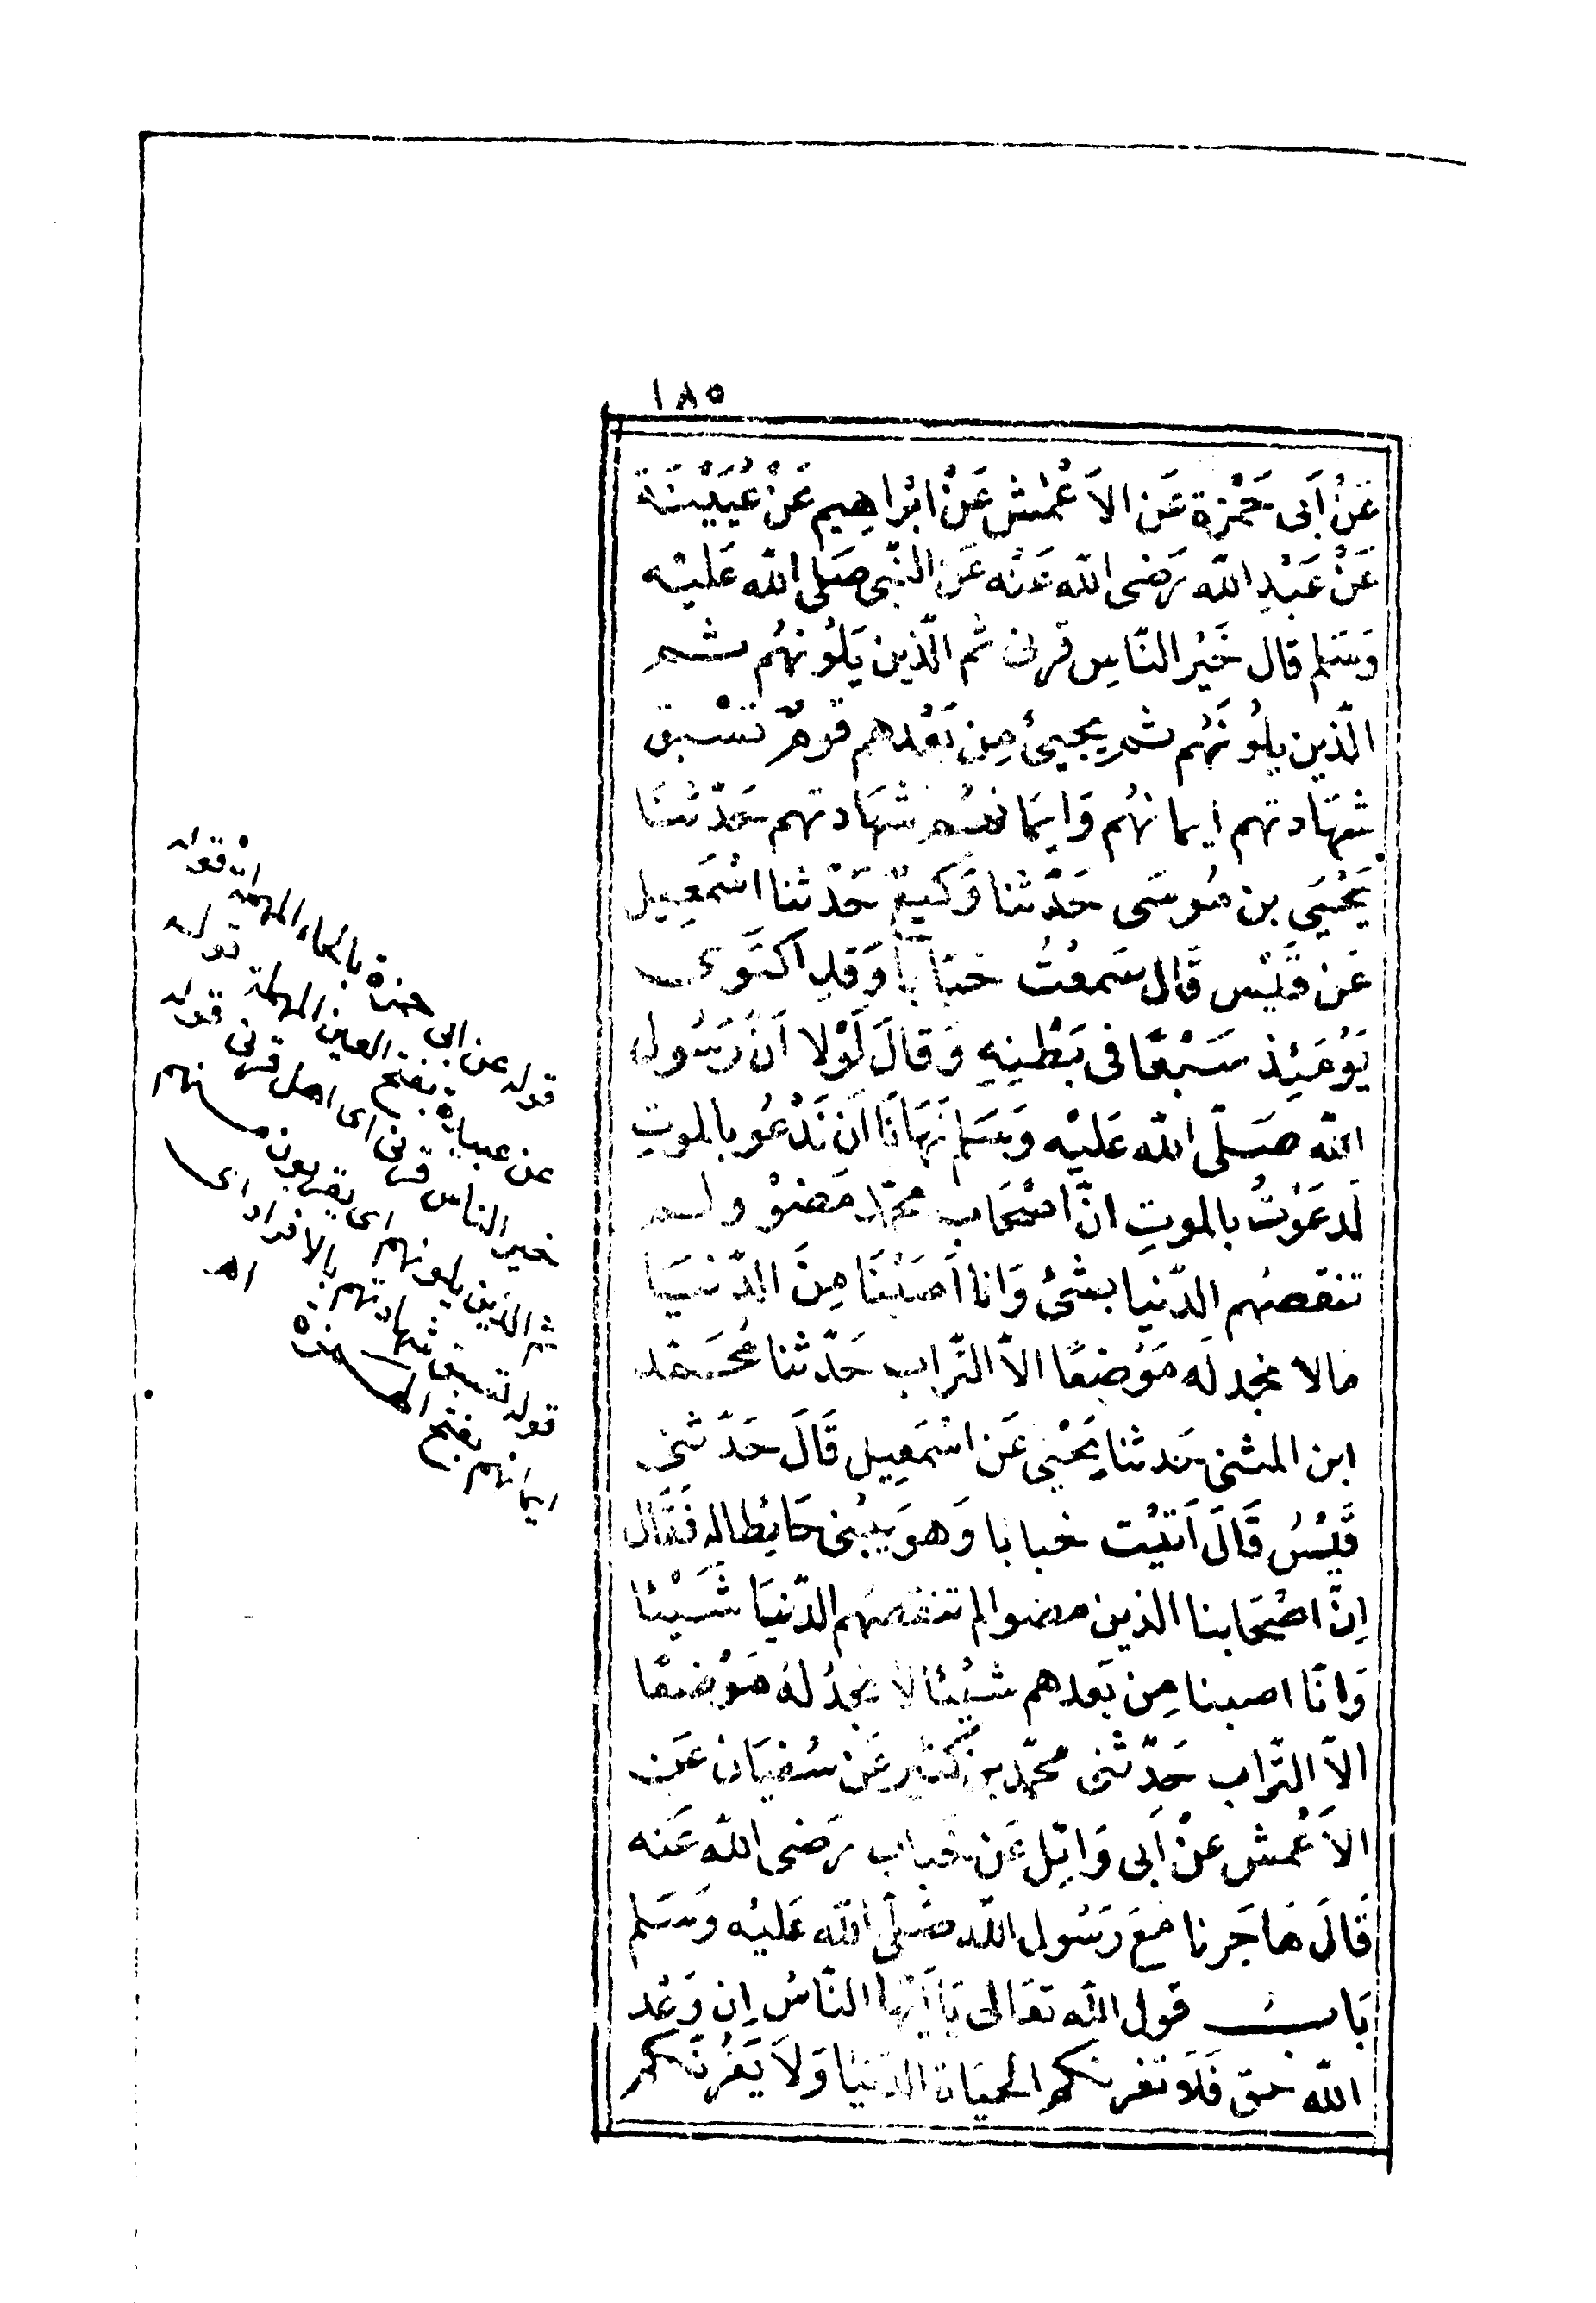 ١٨٥
عَنْ أَبى حَمْزة عَن الاَعْمَش عَنْ ابْراهِيم عَنْ عُبَيْنَة
عَنْ عَبْدِ الله رَضى الله عَنْه عَن النّبى صَلى الله عَليْه
وَسَلم قال خَيْر النّاسِ قرنى ثم الّذين يَلُونهُم ثم
الّذين يلُونَهُم ثم يجيئُ مِن بَعْدهم قومٌ تسْبق
شهَادتهم ايمانهُم وَايمَانهم شهَادتهم حَدّثنَا
يَحْيَى بن مُوسَى حَدّثنا وَكيعٌ حَدّثنا اسْمَعِيل
عَن قَيْس قَال سَمعْتُ خبَابا وَقدِ اكتَوى
يَوْمَئِذ سَبْعًا فى بَطْنِهِ وَقالَ لَوْلا اَنّ رَسُول
الله صَلّى الله عَليْه وَسَلم نَهَانَا اَن نَدْعُو بالموتِ
لَدعَوْتُ بالموتِ انّ اصْحَاب محمّد مَضوْا ولم
تنقصهُم الدّنيا بشىٔ وَانا اَصَبْنَا مِنَ الدّنيَا
مالا نجد لَه مَوْضِعًا الاّ التّراب حَدّثنا مُحَمّد
ابن المثنى حَدثنا يَحْيى عَن اسْمَعِيل قَالَ حَدّثنى
قَيْسُ قَالَ اَتيْت خبابا وَهوَ يبْنى حَايطا له فَقَال
اِنّ اصْحَابنا الذين مضوا لم تنقصهُم الدّنيَا شَيْئا
وَانّا اصبنا مِن بَعدهم شيْئا لا نجدُ لهُ مَوْضعًا
الاّ التّراب حَدّثنى محمّد بن كثير عَن سُفيَان عَن
الاَعْمش عَنْ اَبى وَائِل عَن خَباب رَضى الله عَنه
قَالَ هَاجَرنا مَعَ رَسُول الله صَلّى الله عَليْه وَسَلم
بَابُ قول الله تعَالى يَا اَيّها النّاسُ اِن وَعْد
الله حق فَلَا تغرنكم الحيَاة الدّنيَا وَلاَ يَغُرنّكم
قوله عن ابى حمزة بالحاء المهملة اه قوله
عن عبيدة بفتح العين المهملة قوله
خير الناس قرنى اى اهل قرنى قوله
ثم الذين يلونهم اى يقربون منهم
قوله تسبق شهادتهم بالافراد اى
ايمانهم بفتح الهمزة اهـ